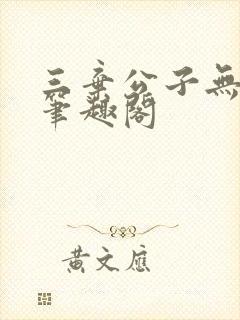 三棄公子無
筆趣閣
黄文應